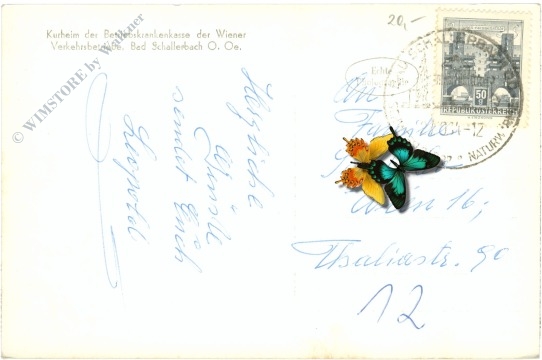 Kurheim der Betriebskrankenkasse der Wiener
Verkehrsbetriebe, Bad Schallerbach O. Oe.
20,-
© WIMSTORE by Wallner
Echte
50
g
REPUBLIK ÖSTERREICH
-12
NATURW
Herzliche
Grüsse
sendet Euch
Leopold
An
Familie
Wien 16;
Thaliastr. 90
12